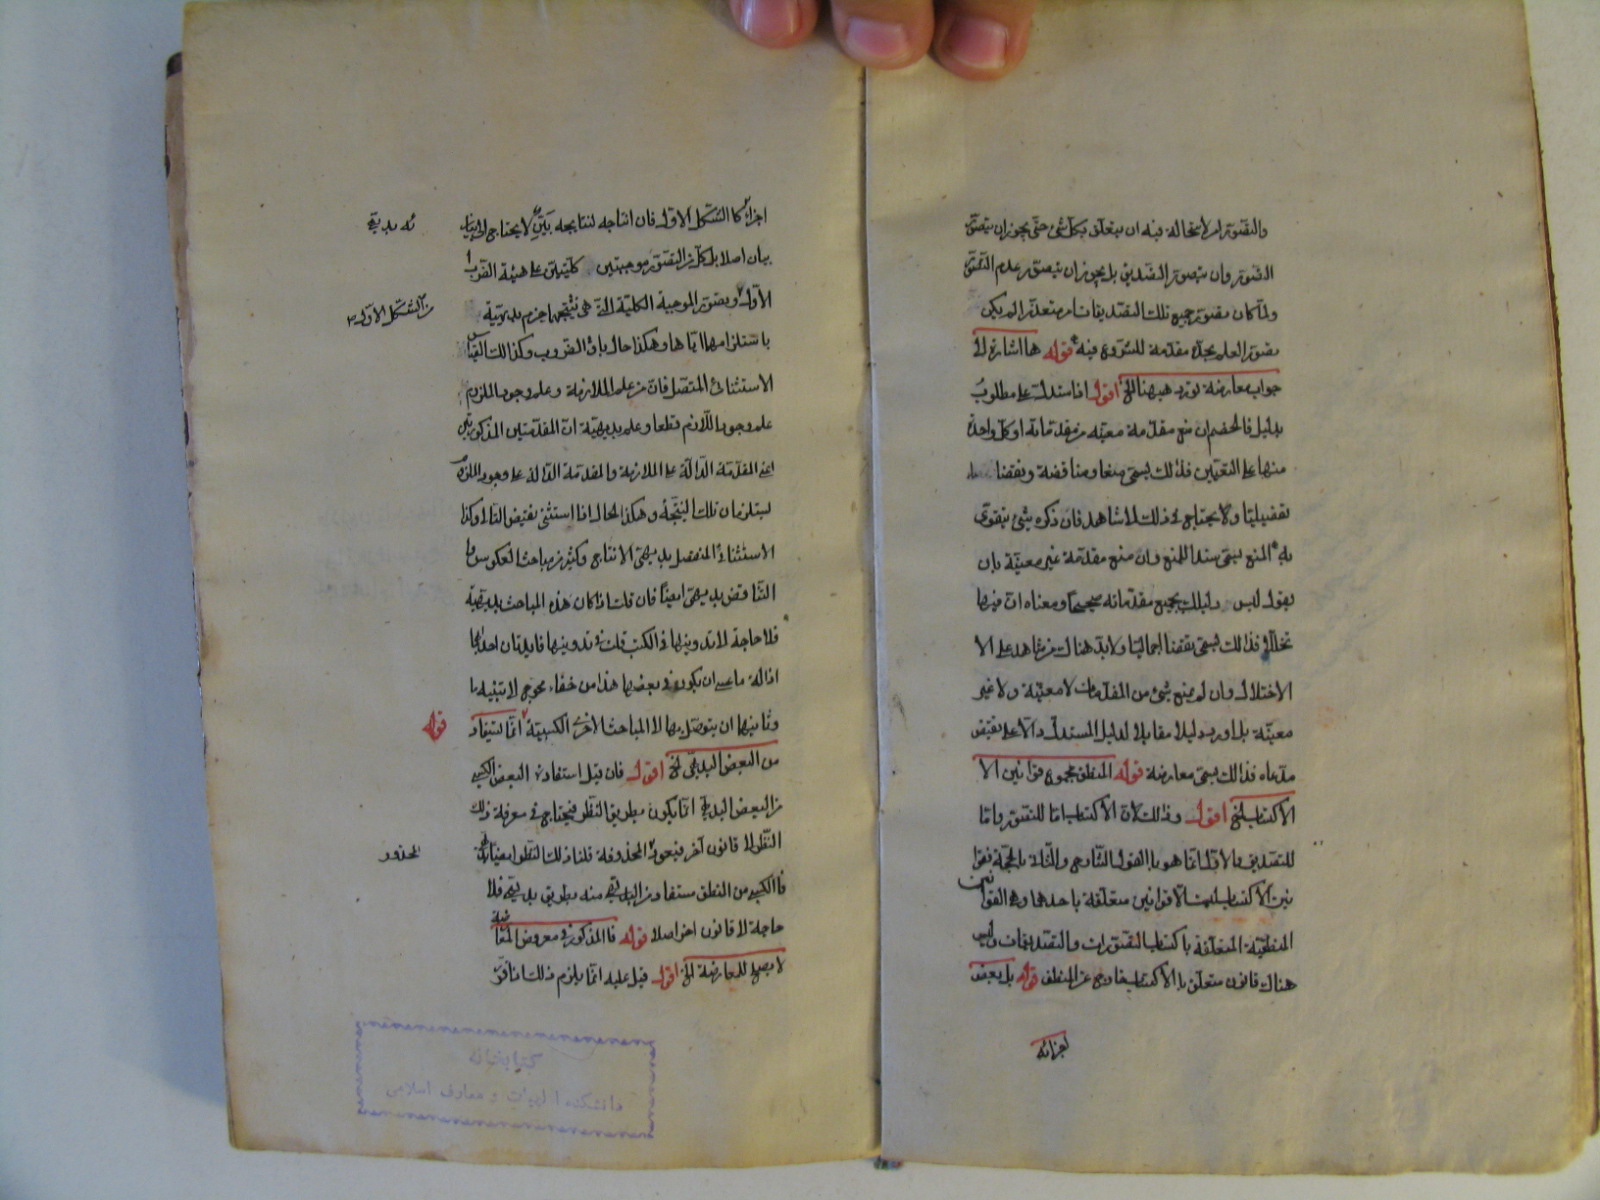 والتصور امر لا استحالة فيه ان يتعلق بكل شئ حتى يجوز ان يتصور
التصور وان يتصور التصديق بل يجوز ان يتصور عدم التصور
ولما كان تصور جميع تلك التصديقات امر متعذرا لم يكن
تصور العلم بحده مقدمة للشروع فيه قوله هيا اشارة الى
جواب معارضة تورد هيهنا الخ اقول اذا استدل على مطلوب
بدليل فالخصم ان منع مقدمة معينة من مقدماته او كل واحدة
منها على التعيين فذلك يسمى منعا ومناقضة ونقضا
تفصيليا ولا يحتاج فى ذلك الى شاهد فان ذكره شئ يتقوى
به المنع يسمى سندا للمنع وان منع مقدمة غير معينة بان
يقول ليس دليلك بجميع مقدماته صحيحا ومعناه ان فيها
خللا فذلك يسمى نقضا اجماليا ولابد هناك من شاهد على الا
الاختلال وان لم يمنع شئ من المقدمات لا معينة ولا غير
معينة بل اورد دليلا مقابلا لدليل المستدل دالا على نقيض
مدعاه فذلك يسمى معارضة قوله المنطق مجموع قوانين الا
الاكتساب الخ اقول وذلك لان الاكتساب اما للتصور واما
للتصديق والاول انما هو بالقول الشارح والثانى بالحجة فقوا
نين الاكتساب ليست الا قوانين متعلقة باحدهما وهى القوانين
المنطقية المتعلقة باكتساب التصورات والتصديقات وليس
هناك قانون متعلق بالاكتساب خارج عن المنطق قوله بل بعض
اجزائه
اجزائه كالشكل الاول فان انتاجه لنتايجه بين لا يحتاج الى
بيان اصلا بل كل من تصور موجبتين كليتين على هيئة الضرب
الاول وتصور الموجبة الكلية التى هى نتيجتها جزم بديهة
من الشكل الاول
باستلزامهما اياها وهكذا حال باقى الضروب وكذا القياس
الاستثنائى المتصل فان من علم الملازمة وعلم وجود الملزوم
علم وجود اللازم قطعا وعلم بديهية ان المقدمتين المذكورتين
اعنى المقدمة الدالة على الملازمة والمقدمة الدالة على وجود الملزوم
يستلزمان تلك النتيجة وهكذا الحال اذا استثنى نقيض التالى وكذا
الاستثنائى المنفصل بديهى الانتاج وكثير من مباحث العكوس و
التناقض بديهى ايضا فان قلت اذا كان هذه المباحث بديهية
فلا حاجة الى تدوينها فى الكتب قلت فى تدوينها فايدتان احديهما
ازالة ما عسى ان يكون فى بعضها هذا من خفاء محوج الى تنبيه
وثانيهما ان يتوصل بها الى المباحث الاخرى الكسبية انما يستفاد
قوله
من البعض البديهى الخ اقول فان قيل استفادة البعض الكسبى
من البعض البديهى انما يكون بطريق النظر فيحتاج فى معرفة ذلك
النظر الى قانون آخر فيعود المحذوفة قلنا ذلك النظر ايضا
المحذور
فالكسبى من المنطق مستفاد من البديهى منه بطريق بديهى فلا
حاجة الى قانون اخر اصلا قوله فالمذكور فى معرض المعارضة
لا يصلح للمعارضة الخ اقول قيل عليه انما يلزم ذلك
كتابخانه
دانشكده الهيات و معارف اسلامى